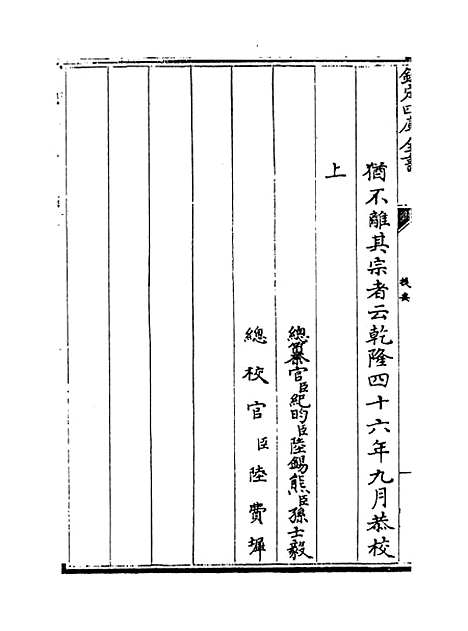 欽定四庫全書
提要
猶不離其宗者云乾隆四十六年九月恭校
上
總纂官臣紀昀臣陸錫熊臣孫士毅
總校官臣陸費墀